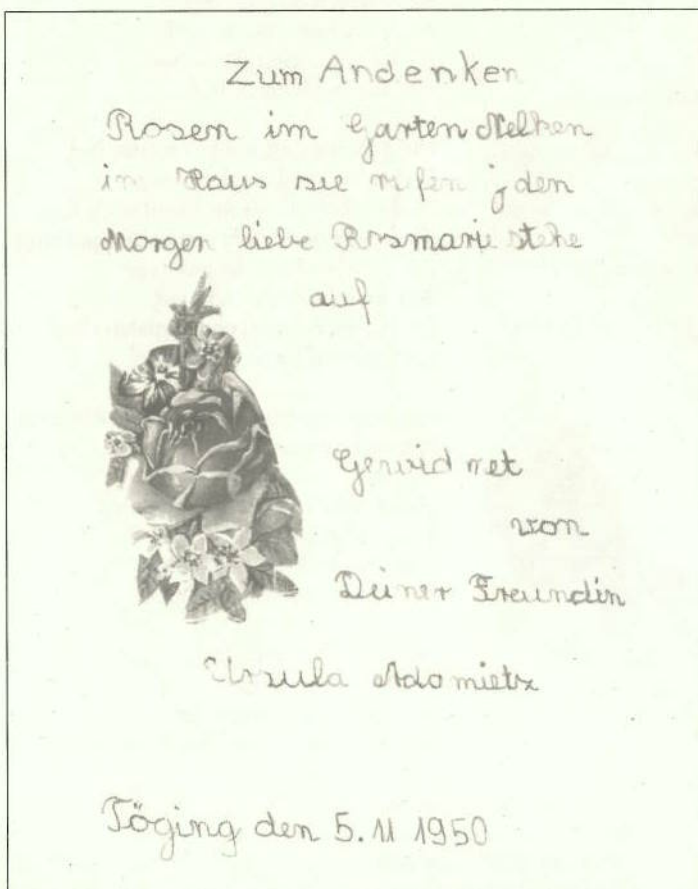 Zum Andenken
Rosen im Garten Nelken
im Haus sie rufen jeden
Morgen liebe Rosmarie stehe
auf
Gewidmet
von
Deiner Freundin
Ursula Adomietz
Töging den 5. 11 1950